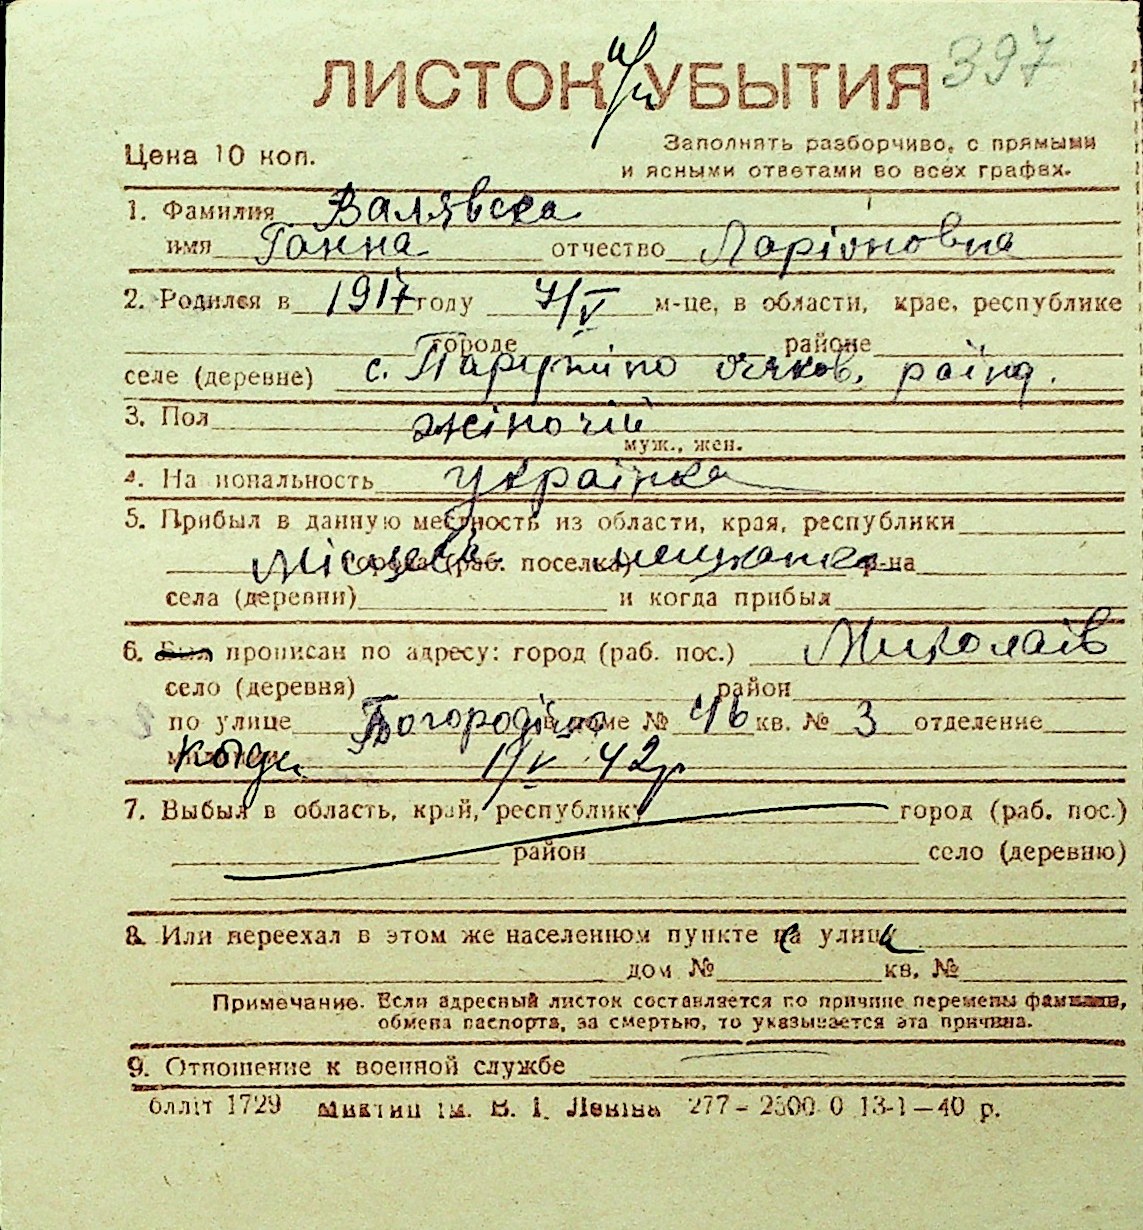 397
ЛИСТОК УБЫТИЯ
Цена 10 коп.
Заполнять разборчиво, с прямыми
и ясными ответами во всех графах.
1. Фамилия Валявска
имя Ганна отчество Ларіоновна
2. Родился в 1917 году 7/V м-це, в области, крае, республике
городе районе
селе (деревне) с. Парутіно очаков. раїна.
3. Пол жіночій
муж., жен.
4. Национальность українка
5. Прибыл в данную местность из области, края, республики
Місцева города (раб. поселка) мешканка р-на
села (деревни) и когда прибыл
6. Был прописан по адресу: город (раб. пос.) Миколаїв
село (деревня) район
по улице в доме № 46 кв. № 3 отделение
милиции 1/V 42р
7. Выбыл в область, край, республику город (раб. пос.)
район село (деревню)
8. Или переехал в этом же населенном пункте на улицу
дом № кв. №
Примечание. Если адресный листок составляется по причине перемены фамилии,
обмена паспорта, за смертью, то указывается эта причина.
9. Отношение к военной службе
блліт 1729 Миктип ім. В. І. Леніна 277-2500 0 13-1-40 р.